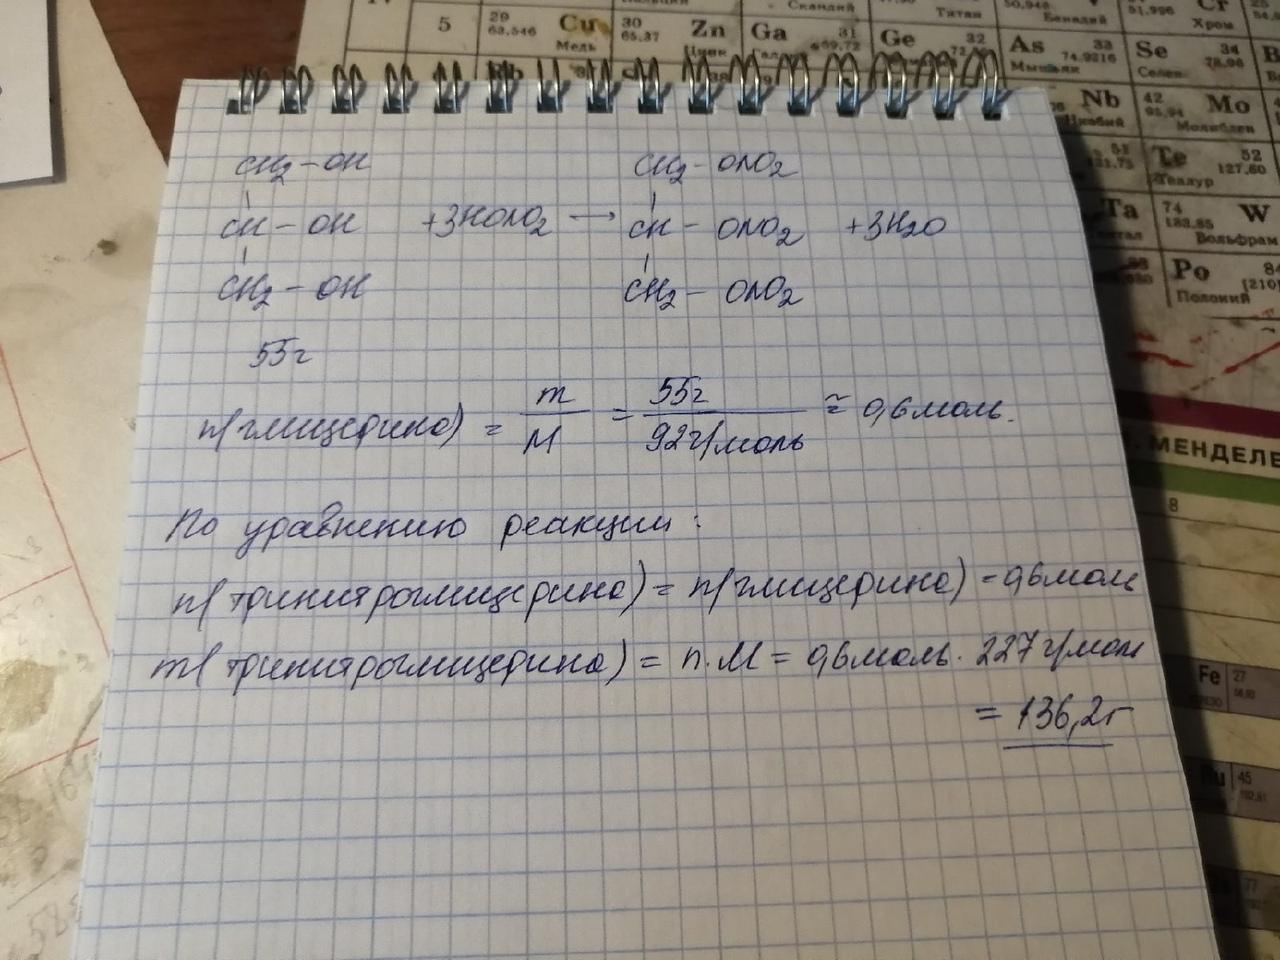 5 29 63,546 Cu Медь 30 65,37 Zn Ga 31 Ge 32 As 33 74,9216 Мышьяк Se 34 78,96 Селен
Скандий Титан 50,942 Ванадий 51,996 Cr Хром
Nb Ниобий 42 95,94 Mo Молибден
Te 52 127,60 Теллур
Ta Тантал 74 183,85 W Вольфрам
Po 84 [210] Полоний
CH2 – OH CH2 – ONO2
CH – OH +3HONO2 → CH – ONO2 +3H2O
CH2 – OH CH2 – ONO2
55г
n(глицерина) = m/M = 55г/92г/моль ≈ 0,6моль.
По уравнению реакции:
n(тринитроглицерина) = n(глицерина) = 0,6моль
m(тринитроглицерина) = n·M = 0,6моль · 227г/моль
= 136,2г
МЕНДЕЛЕ
8
Fe 27
45
77